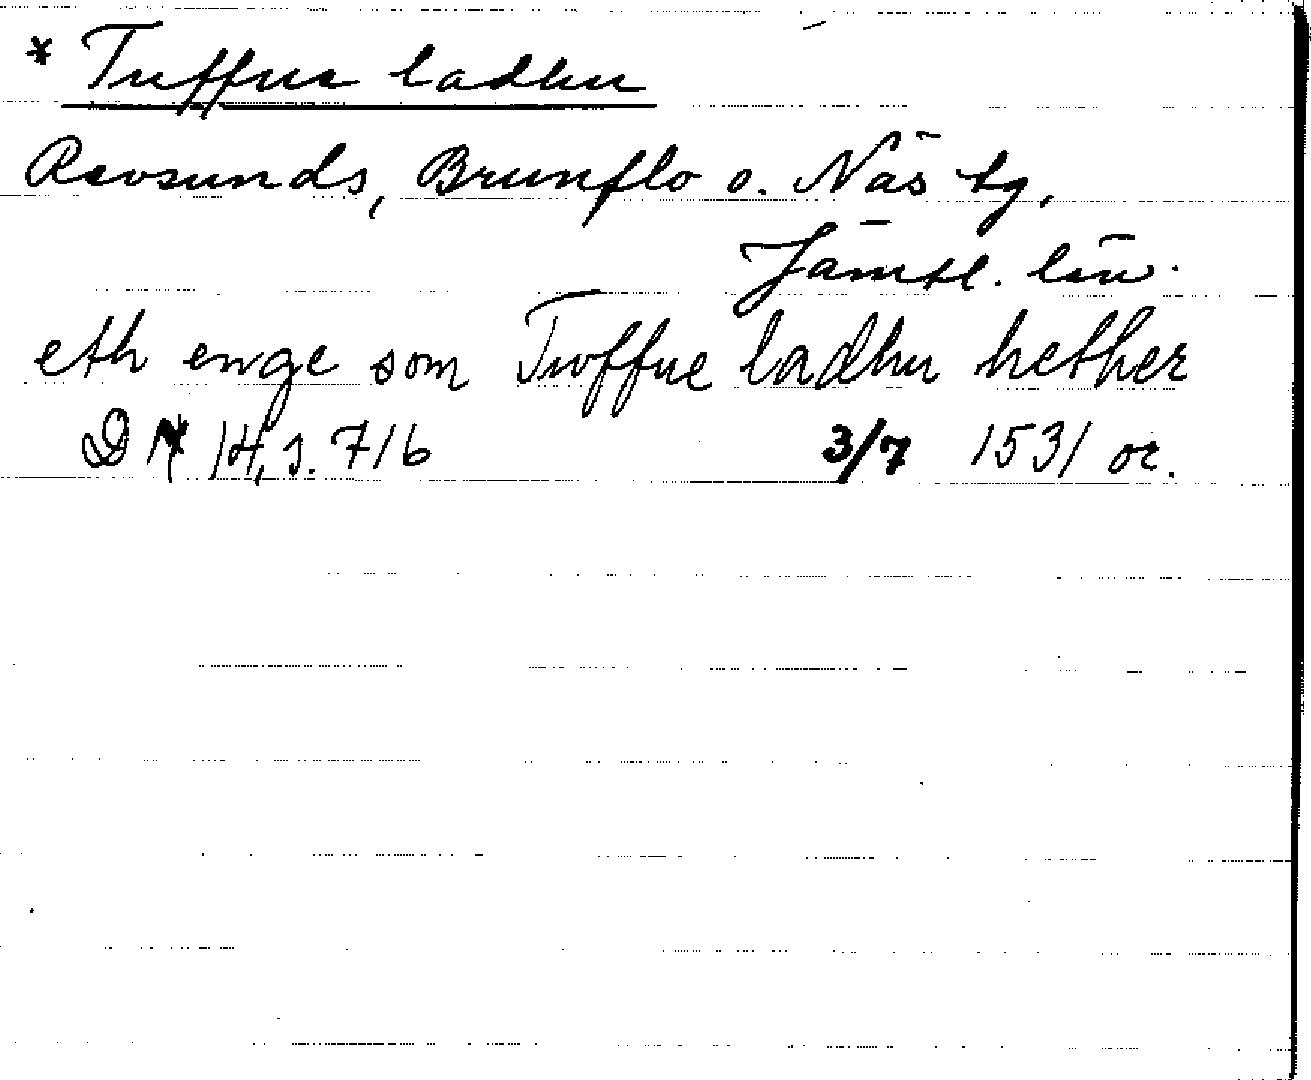 * Tuffue ladhu
Revsunds, Brunflo o. Näs tg,
Jämtl. län.
eth enge som Twffue ladhu hether
DN 14, s. 716 3/7 1531 or.